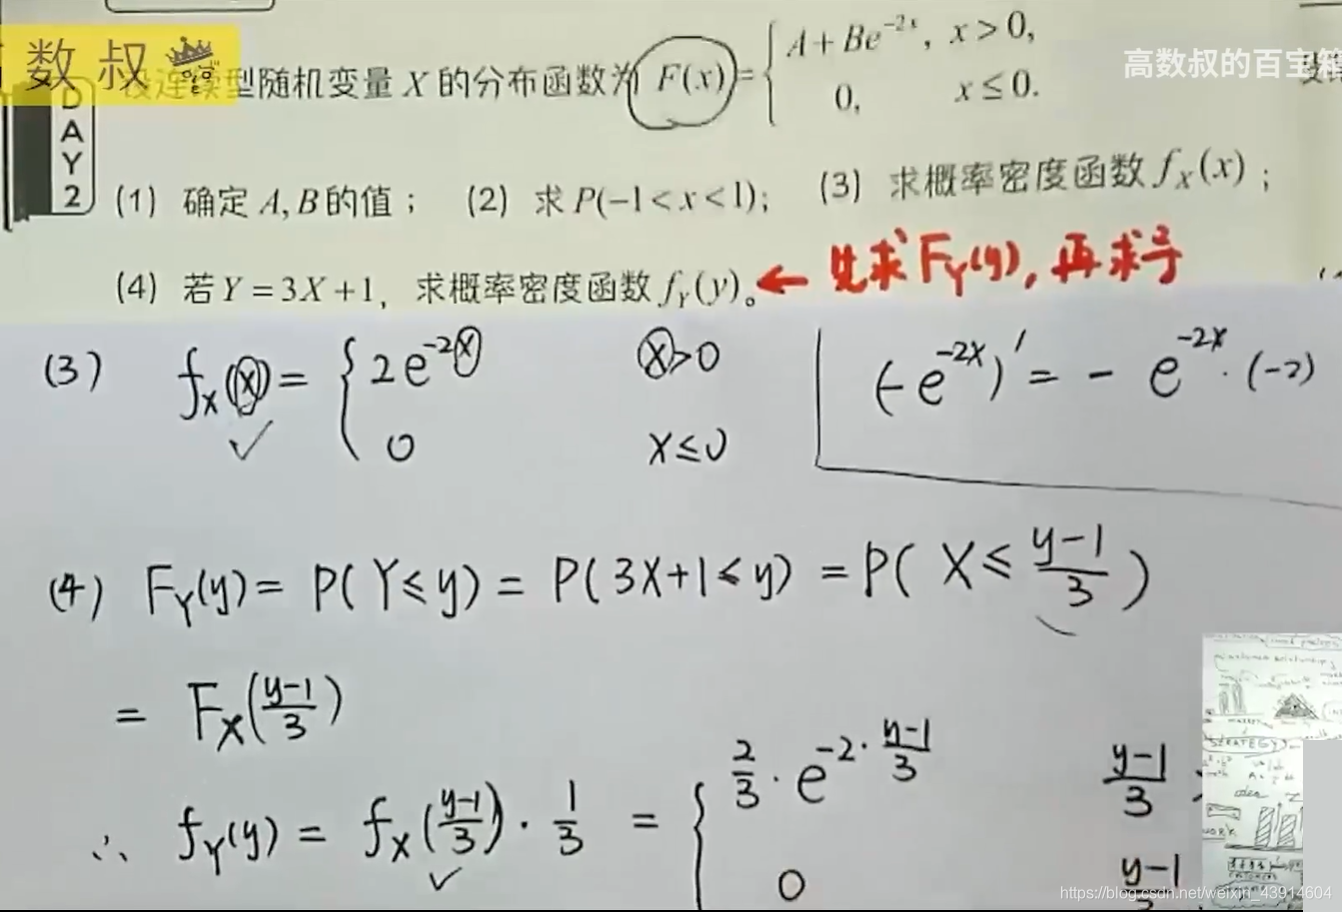 数叔
高数叔的百宝箱
设连续型随机变量 X 的分布函数为 F(x) = { A + Be^{-2x}, x > 0,
0, x ≤ 0.
DAY2
(1) 确定 A, B 的值； (2) 求 P(-1 < x < 1); (3) 求概率密度函数 f_X(x)；
(4) 若 Y = 3X + 1, 求概率密度函数 f_Y(y)。 ← 先求 F_Y(y), 再求导
(3) f_X(x) = { 2e^{-2x} x > 0
0 x ≤ 0
(-e^{-2x})' = - e^{-2x} · (-2)
(4) F_Y(y) = P(Y ≤ y) = P(3X+1 ≤ y) = P(X ≤ \frac{y-1}{3})
= F_X(\frac{y-1}{3})
∴ f_Y(y) = f_X(\frac{y-1}{3}) · \frac{1}{3} = { \frac{2}{3} · e^{-2·\frac{y-1}{3}} \frac{y-1}{3}
0 y-1
STRATEGY
https://blog.csdn.net/weixin_43914604